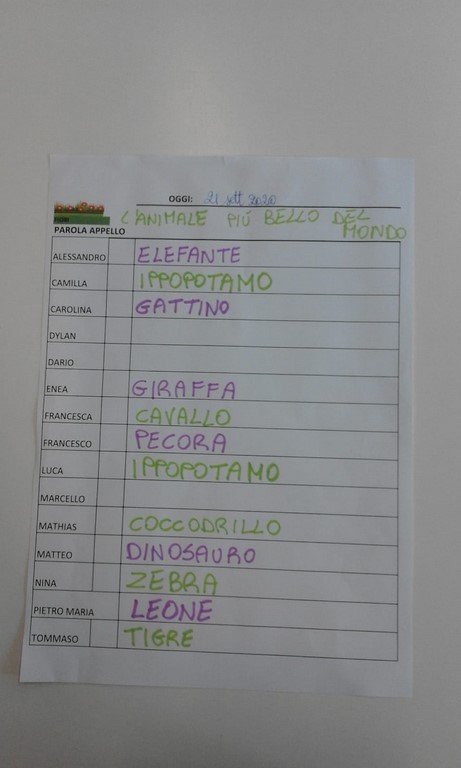 OGGI: 21 sett 2020
L'ANIMALE PIÚ BELLO DEL MONDO
PAROLA APPELLO
ALESSANDRO ELEFANTE
CAMILLA IPPOPOTAMO
CAROLINA GATTINO
DYLAN
DARIO
ENEA GIRAFFA
FRANCESCA CAVALLO
FRANCESCO PECORA
LUCA IPPOPOTAMO
MARCELLO
MATHIAS COCCODRILLO
MATTEO DINOSAURO
NINA ZEBRA
PIETRO MARIA LEONE
TOMMASO TIGRE